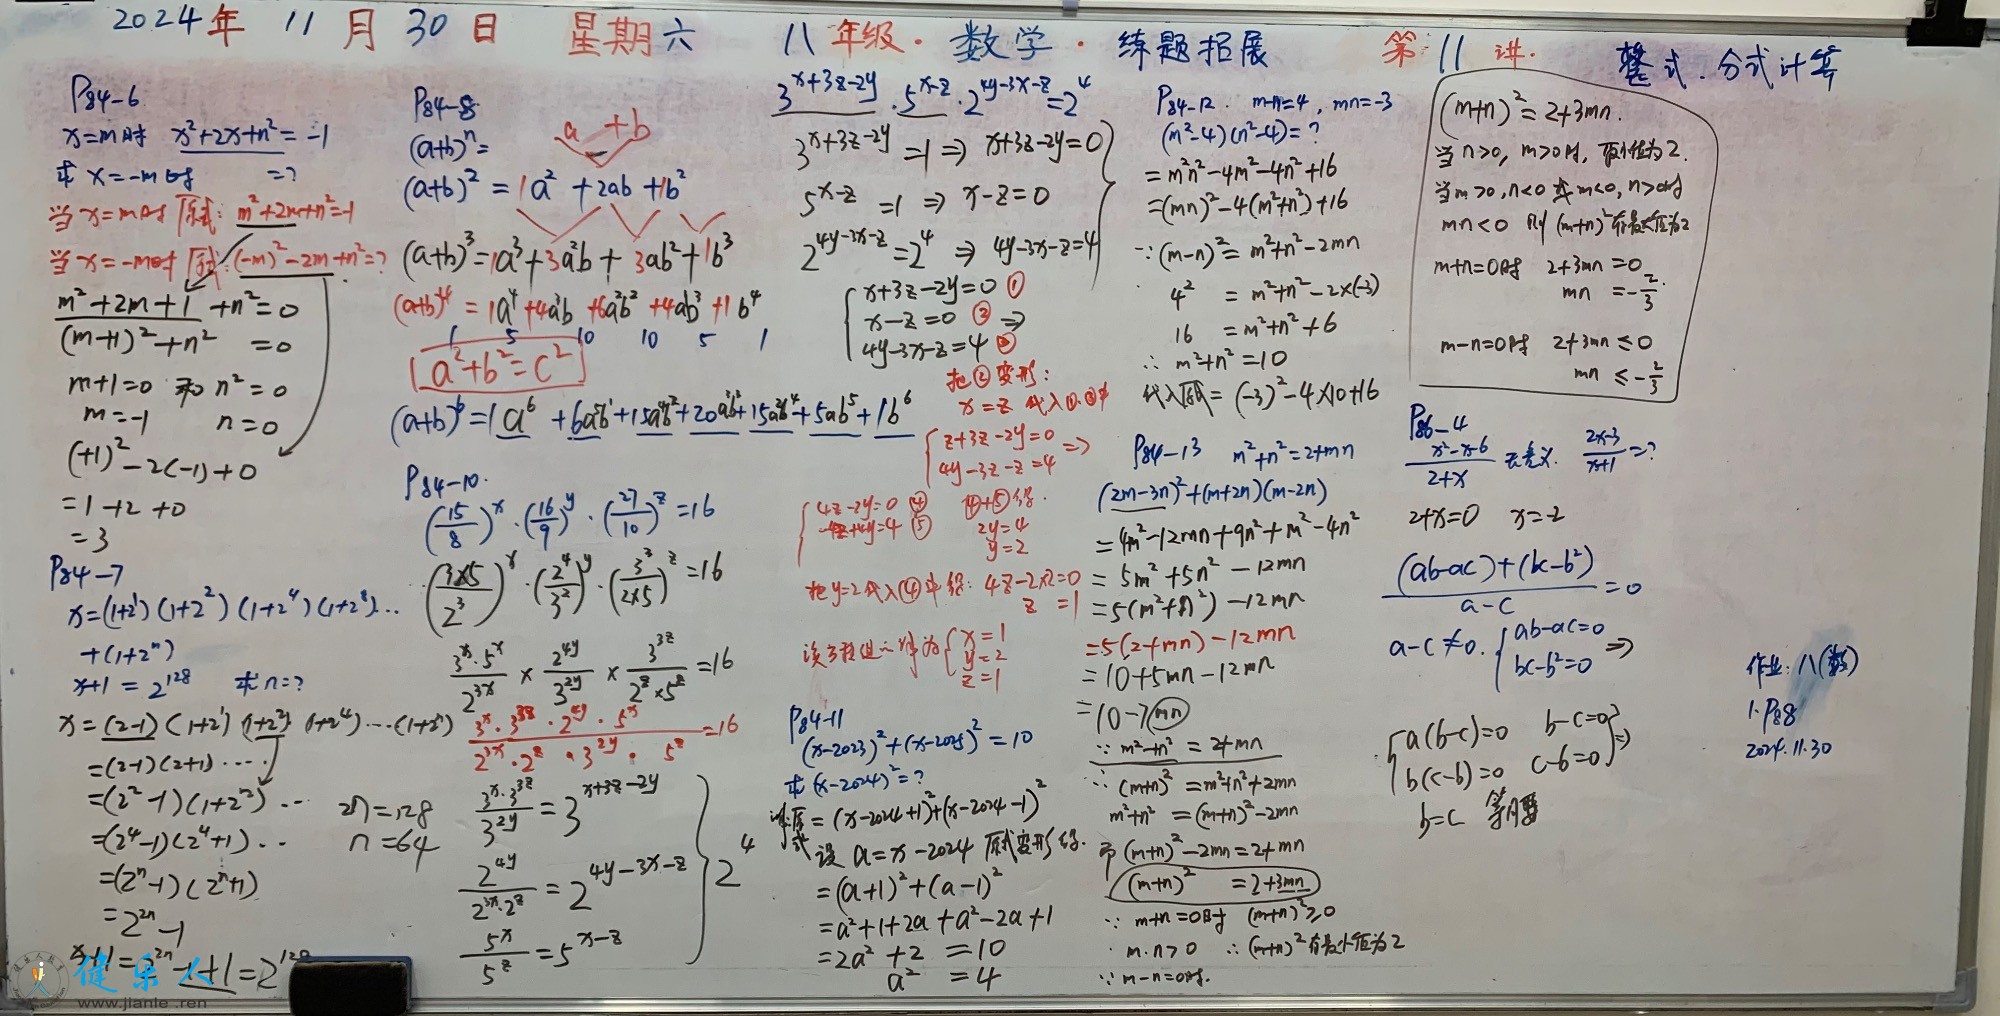 2024年 11月30日 星期六 八年级·数学·练题拓展 第11讲. 整式.分式计算
P84-6
x=m时 x²+2x+n²=-1
求 x=-m时 =?
当x=m时 原式: m²+2m+n²=-1
当x=-m时 原式:(-m)²-2m+n²=?
m²+2m+1+n²=0
(m+1)²+n²=0
m+1=0 和 n²=0
m=-1 n=0
(+1)²-2(-1)+0
=1+2+0
=3
P84-7
x=(1+2¹)(1+2²)(1+2⁴)(1+2⁸)...
+(1+2ⁿ)
x+1=2¹²⁸ 求n=?
x=(2-1)(1+2¹)(1+2²)(1+2⁴)...(1+2ⁿ)
=(2-1)(2+1)....
=(2²-1)(1+2²)...
=(2⁴-1)(2⁴+1)..
=(2ⁿ-1)(2ⁿ+1)
=2²ⁿ-1
x+1=2²ⁿ-1+1=2¹²⁸
2n=128
n=64
P84-8
(a+b)ⁿ=
a+b
(a+b)²=1a²+2ab+1b²
(a+b)³=1a³+3a²b+3ab²+1b³
(a+b)⁴=1a⁴+4a³b+6a²b²+4ab³+1b⁴
1 5 10 10 5 1
a²+b²=c²
(a+b)⁶=1a⁶+6a⁵b¹+15a⁴b²+20a³b³+15a²b⁴+5ab⁵+1b⁶
P84-10.
(15/8)ˣ·(16/9)ʸ·(27/10)ᶻ=16
(3×5/2³)ˣ·(2⁴/3²)ʸ·(3³/2×5)ᶻ=16
3ˣ·5ˣ/2³ˣ × 2⁴ʸ/3²ʸ × 3³ᶻ/2ᶻ×5ᶻ=16
3ˣ·3³ᶻ·2⁴ʸ·5ˣ/2³ˣ·2ᶻ·3²ʸ·5ᶻ=16
3ˣ·3³ᶻ/3²ʸ=3ˣ⁺³ᶻ⁻²ʸ
2⁴ʸ/2³ˣ·2ᶻ=2⁴ʸ⁻³ˣ⁻ᶻ
5ˣ/5ᶻ=5ˣ⁻ᶻ
2⁴
3ˣ⁺³ᶻ⁻²ʸ·5ˣ⁻ᶻ·2⁴ʸ⁻³ˣ⁻ᶻ=2⁴
3ˣ⁺³ᶻ⁻²ʸ=1⇒x+3z-2y=0
5ˣ⁻ᶻ=1⇒x-z=0
2⁴ʸ⁻³ˣ⁻ᶻ=2⁴⇒4y-3x-z=4
x+3z-2y=0 ①
x-z=0 ② ⇒
4y-3x-z=4 ③
把②变形:
x=z 代入①.③中
z+3z-2y=0
4y-3z-z=4 ⇒
4z-2y=0 ④ ④+⑤得.
-4z+4y=4 ⑤ 2y=4
y=2
把y=2代入④中得: 4z-2×2=0
z=1
该方程组之解为 x=1
y=2
z=1
P84-11
(x-2023)²+(x-2025)²=10
求(x-2024)²=?
解:原式=(x-2024+1)²+(x-2024-1)²
设a=x-2024 原式变形得.
=(a+1)²+(a-1)²
=a²+1+2a+a²-2a+1
=2a²+2=10
a²=4
P84-12. m-n=4, mn=-3
(m²-4)(n²-4)=?
=m²n²-4m²-4n²+16
=(mn)²-4(m²+n²)+16
∵(m-n)²=m²+n²-2mn
4²=m²+n²-2×(-3)
16=m²+n²+6
∴m²+n²=10
代入原式=(-3)²-4×10+16
P84-13 m²+n²=2+mn
(2m-3n)²+(m+2n)(m-2n)
=4m²-12mn+9n²+m²-4n²
=5m²+5n²-12mn
=5(m²+n²)-12mn
=5(2+mn)-12mn
=10+5mn-12mn
=10-7mn
∵m²+n²=2+mn
∵(m+n)²=m²+n²+2mn
m²+n²=(m+n)²-2mn
即(m+n)²-2mn=2+mn
(m+n)²=2+3mn
∵m+n=0时 (m+n)²≥0
m·n>0 ∴(m+n)²有最小值为2
∵m-n=0时.
(m+n)²=2+3mn.
当n>0, m>0时, 最小值为2.
当m>0,n<0 或m<0,n>0时
mn<0 则(m+n)²有最大值为2
m+n=0时 2+3mn=0
mn=-2/3.
m-n=0时 2+3mn≤0
mn≤-2/3
P86-4
x²-x-6/2+x 无意义. 2x-3/x+1=?
2+x=0 x=-2
(ab-ac)+(bc-b²)/a-c=0
a-c≠0. ab-ac=0
bc-b²=0 ⇒
a(b-c)=0 b-c=0
b(c-b)=0 c-b=0 ⇒
b=c 等腰
作业:八(数)
1.P88
2024.11.30
健乐人
www.jianle.ren